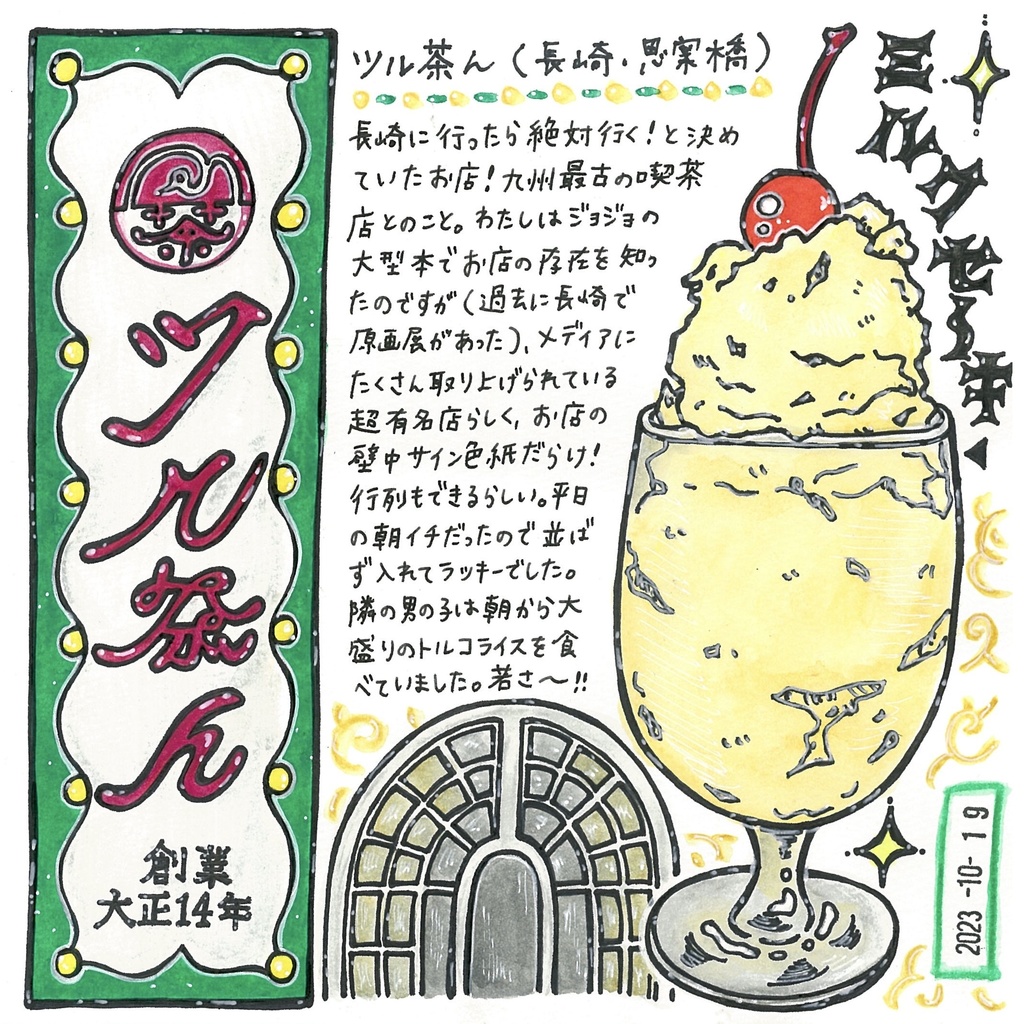 ツル茶ん
創業
大正14年
ツル茶ん(長崎・思案橋)
長崎に行ったら絶対行く!と決め
ていたお店!九州最古の喫茶
店とのこと。わたしはジョジョの
大型本でお店の存在を知っ
たのですが(過去に長崎で
原画展があった)、メディアに
たくさん取り上げられている
超有名店らしく、お店の
壁中サイン色紙だらけ!
行列もできるらしい。平日
の朝イチだったので並ば
ず入れてラッキーでした。
隣の男の子は朝から大
盛りのトルコライスを食
べていました。若さ〜!!
ミルクセーキ
2023-10-19